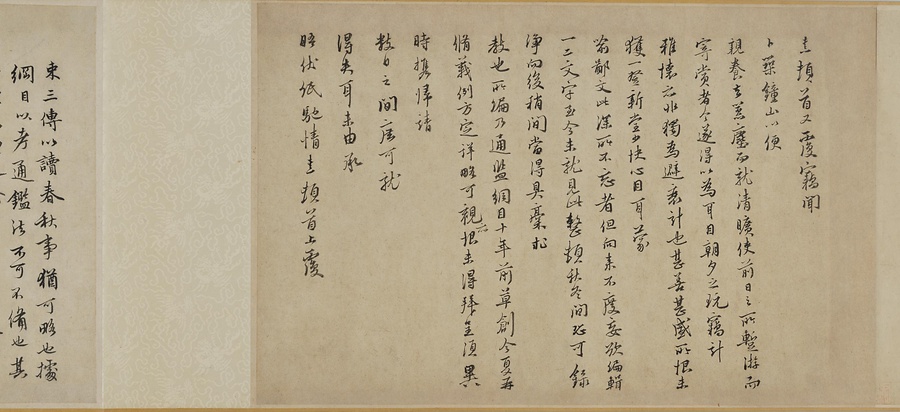 熹頓首又覆竊聞
卜築鍾山以便
親養去囂塵而就清曠使前日之所暫游而
寄賞者今遂得以為耳目朝夕之玩竊計
雅懷亦非獨為避衰計也甚善甚盛所恨未
獲一登新堂少快心目耳蒙
喻鄙文此深所不忘者但向來不度妄欲編輯
一二文字至今未就見此整頓秋冬間恐可錄
淨向後稍間當得具稾求
教也所編乃通鑑綱目十年前草創今夏再
脩義例方定詳略可觀亦恨未得拜呈須異
時攜歸請
數日之間庶可就
得失耳未由承
晤伏紙馳情熹頓首上覆
束三傳以讀春秋事猶可略也據
綱目以考通鑑法不可不備也其